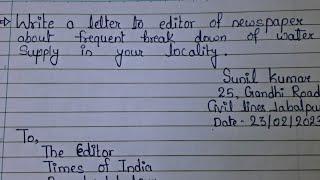 ⇒ Write a letter to editor of newspaper
about frequent break down of water
Supply in your locality.
Sunil Kumar
25, Gandhi Road
Civil lines Jabalpur
Date - 23/02/2023
To,
The Editor
Times of India